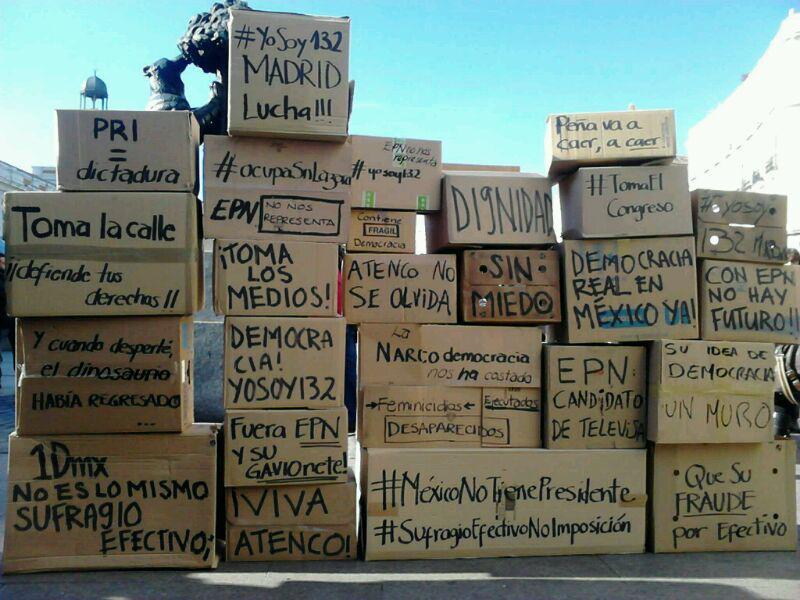 #YoSoy132
MADRID
Lucha!!!
PRI
=
dictadura
#ocupaSnLazaro
EPN
NO NOS
REPRESENTA
EPN no nos
representa
#yosoy132
Contiene
FRAGIL
Democracia
DIGNIDAD
Peña va a
caer, a caer
#TomaEl
Congreso
#Yosoy
132
Toma la calle
¡¡defiende tus
derechos!!
¡TOMA
LOS
MEDIOS!
ATENCO NO
SE OLVIDA
SIN
MIEDO
DEMOCRACIA
REAL EN
MÉXICO YA!
CON EPN
NO HAY
FUTURO!!
Y cuando desperté,
el dinosaurio
HABÍA REGRESADO
...
DEMOCRA
CIA!
YOSOY132
La
NARCO democracia
nos ha costado
→Feminicidios←
Ejecutados
DESAPARECIDOS
EPN:
CANDIDATO
DE TELEVISA
SU IDEA DE
DEMOCRACIA
UN MURO
1Dmx
NO ES LO MISMO
SUFRAGIO
EFECTIVO;
Fuera EPN
Y SU
GAVIOnete!
¡VIVA
ATENCO!
#MéxicoNoTienePresidente
#SufragioEfectivoNoImposición
Que Su
FRAUDE
por Efectivo